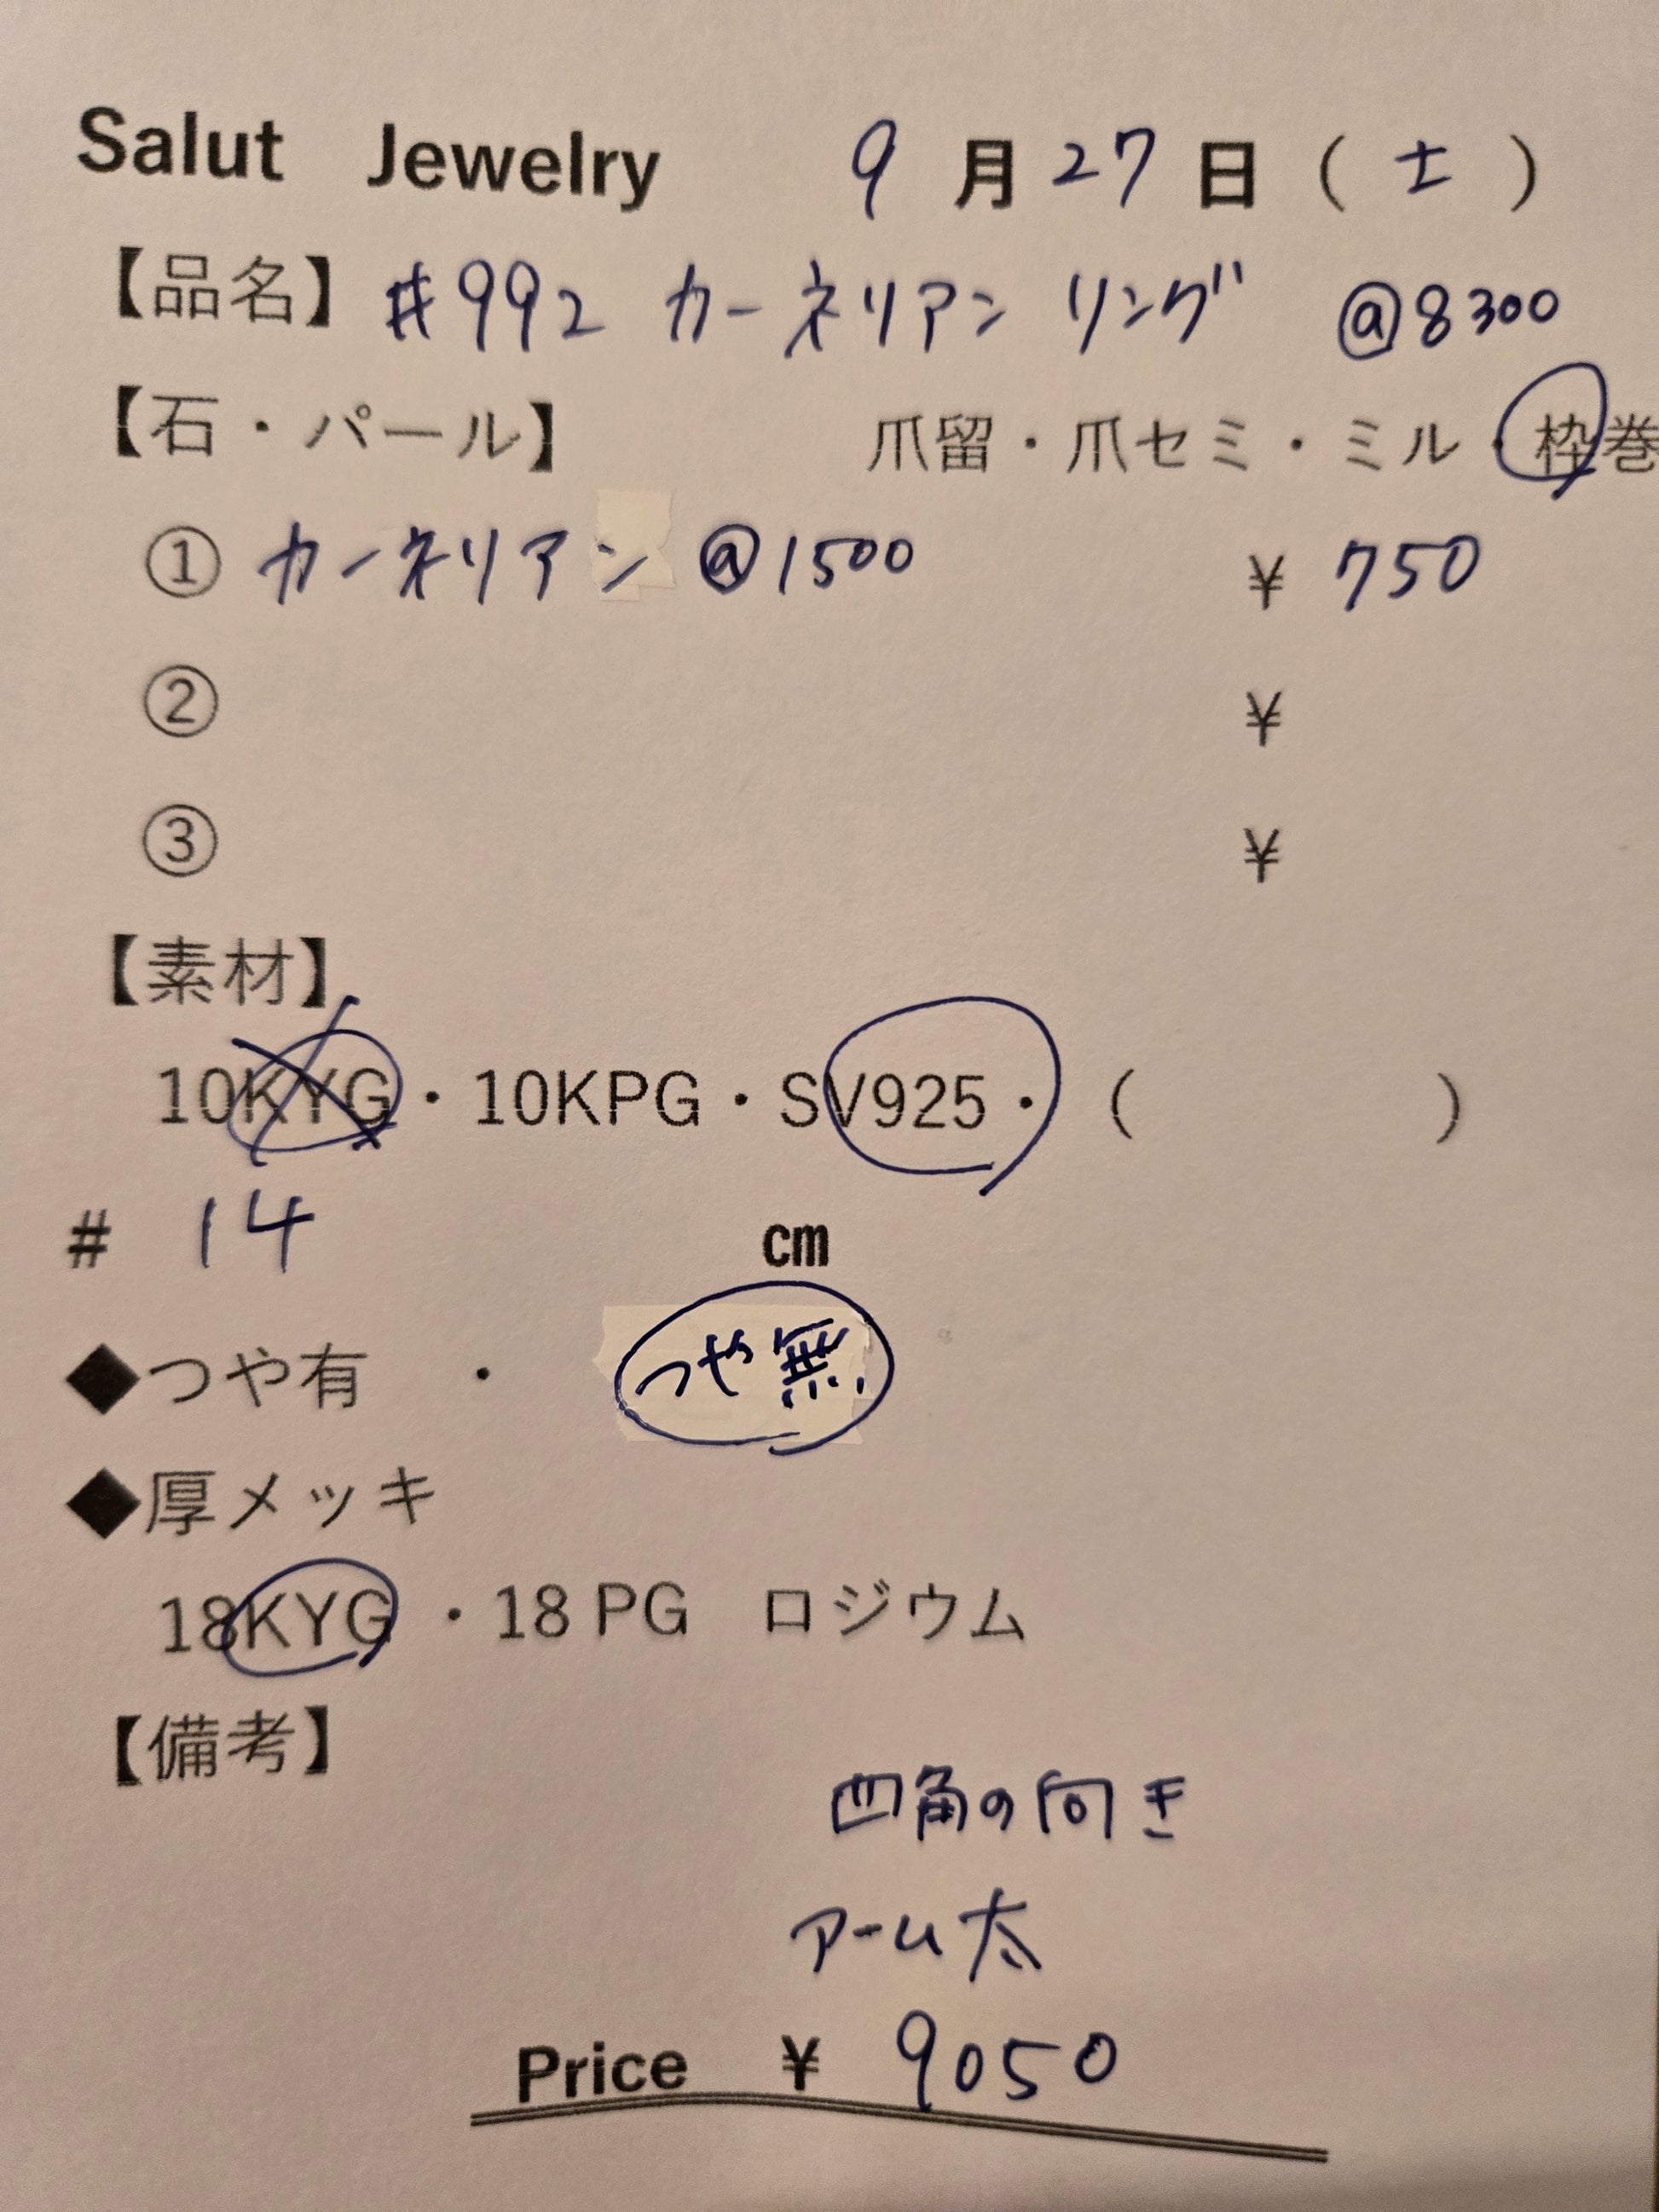 Salut Jewelry 9月27日(土)
【品名】#992 カーネリアン リング @8300
【石・パール】 爪留・爪セミ・ミル・枠巻
① カーネリアン @1500 ¥750
② ¥
③ ¥
【素材】
10KYG・10KPG・SV925・( )
# 14 cm
◆つや有 ・ つや無
◆厚メッキ
18KYG ・18 PG ロジウム
【備考】
四角の向き
アーム太
Price ¥ 9050